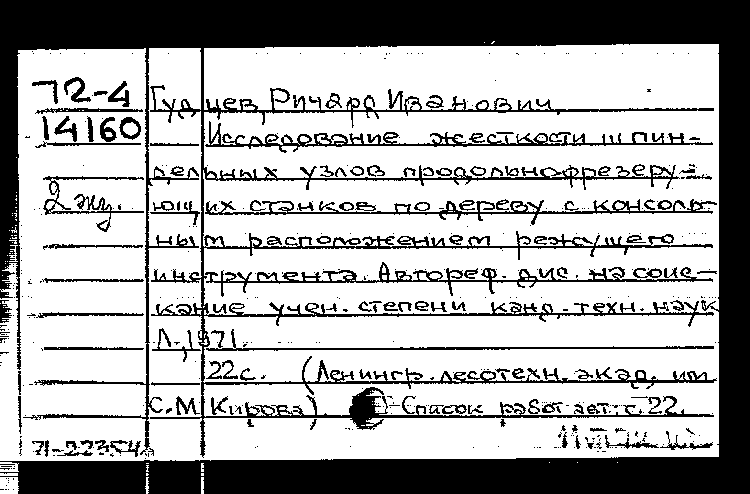 72-4
14160
2 экз.
Гудцев, Ричард Иванович.
Исследование жесткости шпин-
дельных узлов продольнофрезеру-
ющих станков по дереву с консоль-
ным расположением режущего
инструмента. Автореф. дис. на соис-
кание учен. степени канд. техн. наук
Л., 1971.
22 с. (Ленингр. лесотехн. акад. им
С.М Кирова). Список работ авт.: с. 22.
71-22354